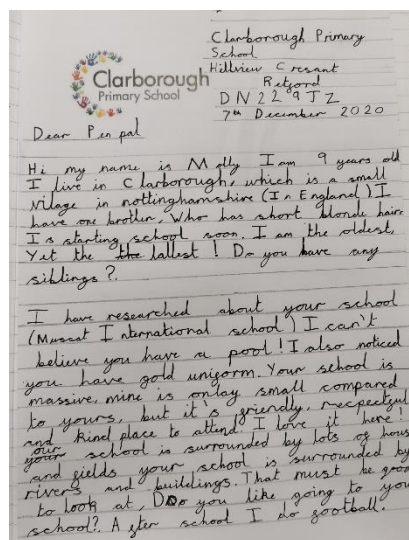 Clarborough Primary
School
Hillview Cresant
Retford
DN22 9JZ
7th December 2020
Clarborough
Primary School
Dear Pen pal
Hi my name is Molly I am 9 years old
I live in Clarborough, which is a small
vilage in nottinghamshire (In England) I
have one brother. Who has short blonde hair.
Is starting school soon. I am the oldest,
Yet the the tallest! Do you have any
siblings?.
I have researched about your school
(Muscat International school) I can't
believe you have a pool! I also noticed
you have gold uniform. Your school is
massive, mine is onlay small compared
to yours, but it's friendly, respectful
and kind place to attend. I love it here!
our your school is surrounded by lots of hous
and fields your school is surrounded by
rivers and buildings. That must be good
to look at, Do you like going to you
school? After school I do football.